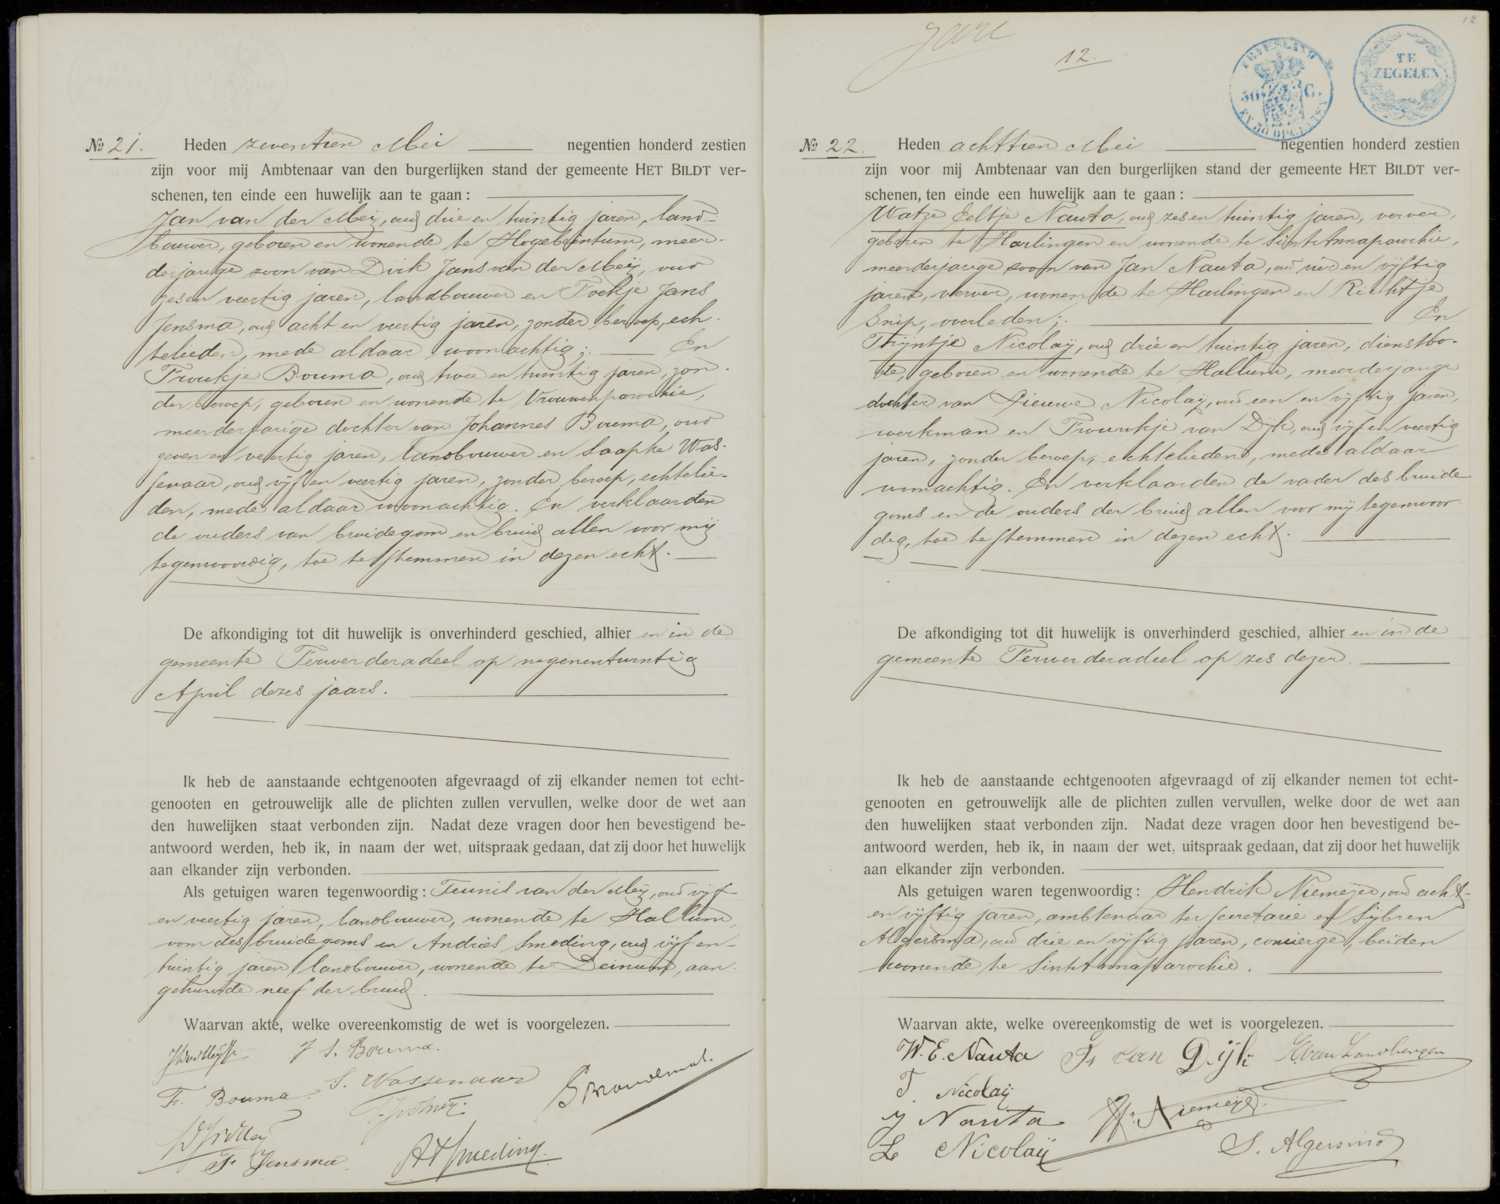 No 21.
Heden zeventien Mei negentien honderd zestien
zijn voor mij Ambtenaar van den burgerlijken stand der gemeente HET BILDT ver-
schenen, ten einde een huwelijk aan te gaan:
Jan van der Meij, oud drie en twintig jaren, land-
bouwer, geboren en wonende te Hogebeintum, meer-
derjarige zoon van Dirk Jans van der Meij, oud
zes en veertig jaren, landbouwer en Foekje Jans
Jensma, oud acht en veertig jaren, zonder beroep, ech-
telieden, mede aldaar woonachtig; En
Froukje Bouma, oud twee en twintig jaren, zon-
der beroep, geboren en wonende te Vrouwenparochie,
meerderjarige dochter van Johannes Bouma, oud
zeven en veertig jaren, landbouwer en Saapke Was-
senaar, oud vijf en veertig jaren, zonder beroep, echtelie-
den, mede aldaar woonachtig. En verklaarden
de ouders van bruidegom en bruid allen voor mij
tegenwoordig, toe te stemmen in dezen echt.
De afkondiging tot dit huwelijk is onverhinderd geschied, alhier en in de
gemeente Ferwerderadeel op negenentwintig
April dezes jaars.
Ik heb de aanstaande echtgenooten afgevraagd of zij elkander nemen tot echt-
genooten en getrouwelijk alle de plichten zullen vervullen, welke door de wet aan
den huwelijken staat verbonden zijn. Nadat deze vragen door hen bevestigend be-
antwoord werden, heb ik, in naam der wet, uitspraak gedaan, dat zij door het huwelijk
aan elkander zijn verbonden.
Als getuigen waren tegenwoordig: Teunis van der Meij, oud vijf
en veertig jaren, landbouwer, wonende te Hallum,
oom des bruidegoms en Andries Smeding, oud vijf en
twintig jaren, landbouwer, wonende te Deinum, aan-
gehuwde neef der bruid.
Waarvan akte, welke overeenkomstig de wet is voorgelezen.
J S. Bouma.
F. Bouma
S. Wassenaar
F. Jensma
A Smeding.
12.
12
FRIESLAND
50 C.
EN 38 OPCENTEN
TE
ZEGELEN
No 22.
Heden achttien Mei negentien honderd zestien
zijn voor mij Ambtenaar van den burgerlijken stand der gemeente HET BILDT ver-
schenen, ten einde een huwelijk aan te gaan:
Watze Eeltje Nauta, oud zes en twintig jaren, verver,
geboren te Harlingen en wonende te Sint Annaparochie,
meerderjarige zoon van Jan Nauta, oud vier en vijftig
jaren, verver, wonende te Harlingen en Richtje
Snip, overleden; En
Trijntje Nicolaij, oud drie en twintig jaren, dienstbo-
de, geboren en wonende te Hallum, meerderjarige
dochter van Lieuwe Nicolaij, oud een en vijftig jaren,
werkman en Trourikje van Dijk, oud vijf en veertig
jaren, zonder beroep, echtelieden, mede aldaar
woonachtig. En verklaarden de vader des bruide
goms en de ouders der bruid allen voor mij tegenwoor
dig, toe te stemmen in dezen echt.
De afkondiging tot dit huwelijk is onverhinderd geschied, alhier en in de
gemeente Ferwerderadeel op zes dezer
Ik heb de aanstaande echtgenooten afgevraagd of zij elkander nemen tot echt-
genooten en getrouwelijk alle de plichten zullen vervullen, welke door de wet aan
den huwelijken staat verbonden zijn. Nadat deze vragen door hen bevestigend be-
antwoord werden, heb ik, in naam der wet, uitspraak gedaan, dat zij door het huwelijk
aan elkander zijn verbonden.
Als getuigen waren tegenwoordig: Hendrik Niemeijer, oud acht
en vijftig jaren, ambtenaar ter secretarie en Sijbren
Algersma, oud drie en vijftig jaren, concierge, beiden
wonende te Sint Annaparochie.
Waarvan akte, welke overeenkomstig de wet is voorgelezen.
W. E. Nauta
van Dijk
T. Nicolaij
J Nauta
H. Niemeijer.
L Nicolaij
S. Algersma